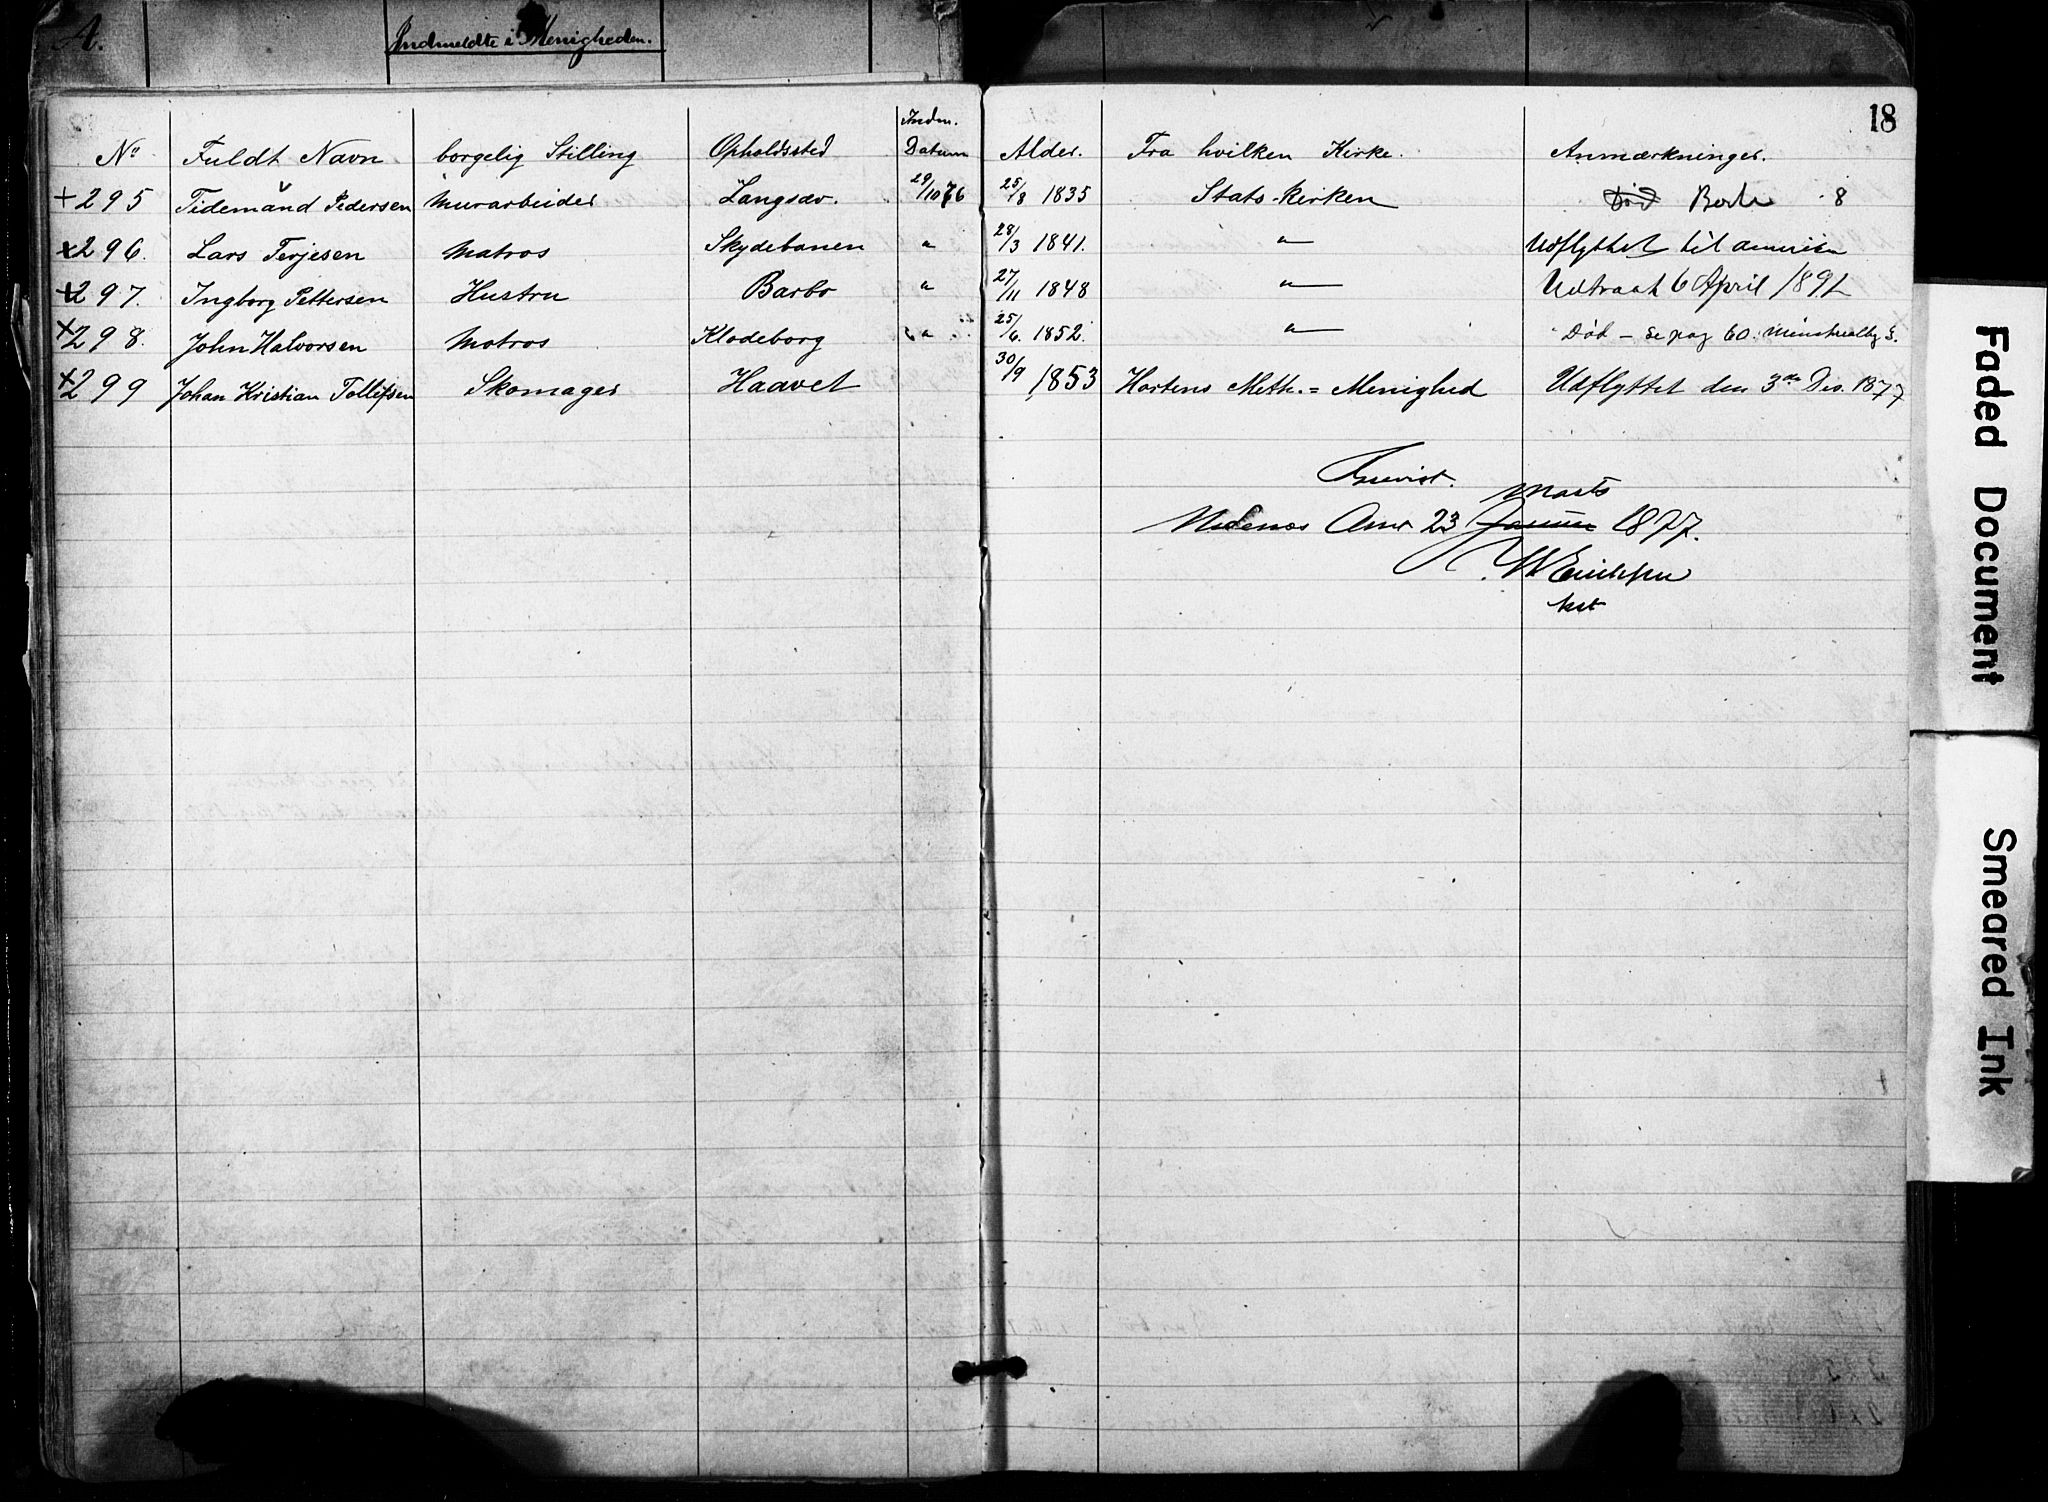 A.
Indmeldte i Menigheden.
18
No Fuldt Navn borgelig Stilling Opholdssted Indm. Datum Alder. Fra hvilken Kirke. Anmærkninger.
+ 295 Tidemand Pedersen Murarbeider Langsæv. 29/10 76 25/8 1835 Stats-Kirken Død 8
x 296. Lars Terjesen Matros Skydebanen " 28/3 1841. " Udflyttet til
x 297. Ingborg Pettersen Hustru Barbo " 27/11 1848 " Udtraat 6 April 1891
x 298. John Halvorsen Matros Klodeborg " 25/6. 1852. " Død - se pag 60.
x 299 Johan Kristian Tollefsen Skomager Haavet 30/9 1853 Hortens Meth. = Menighed Udflyttet den 3de Des. 1877
Marts
Nedenæs Amt 23 Januar 1877.
Faded Document
Smeared Ink